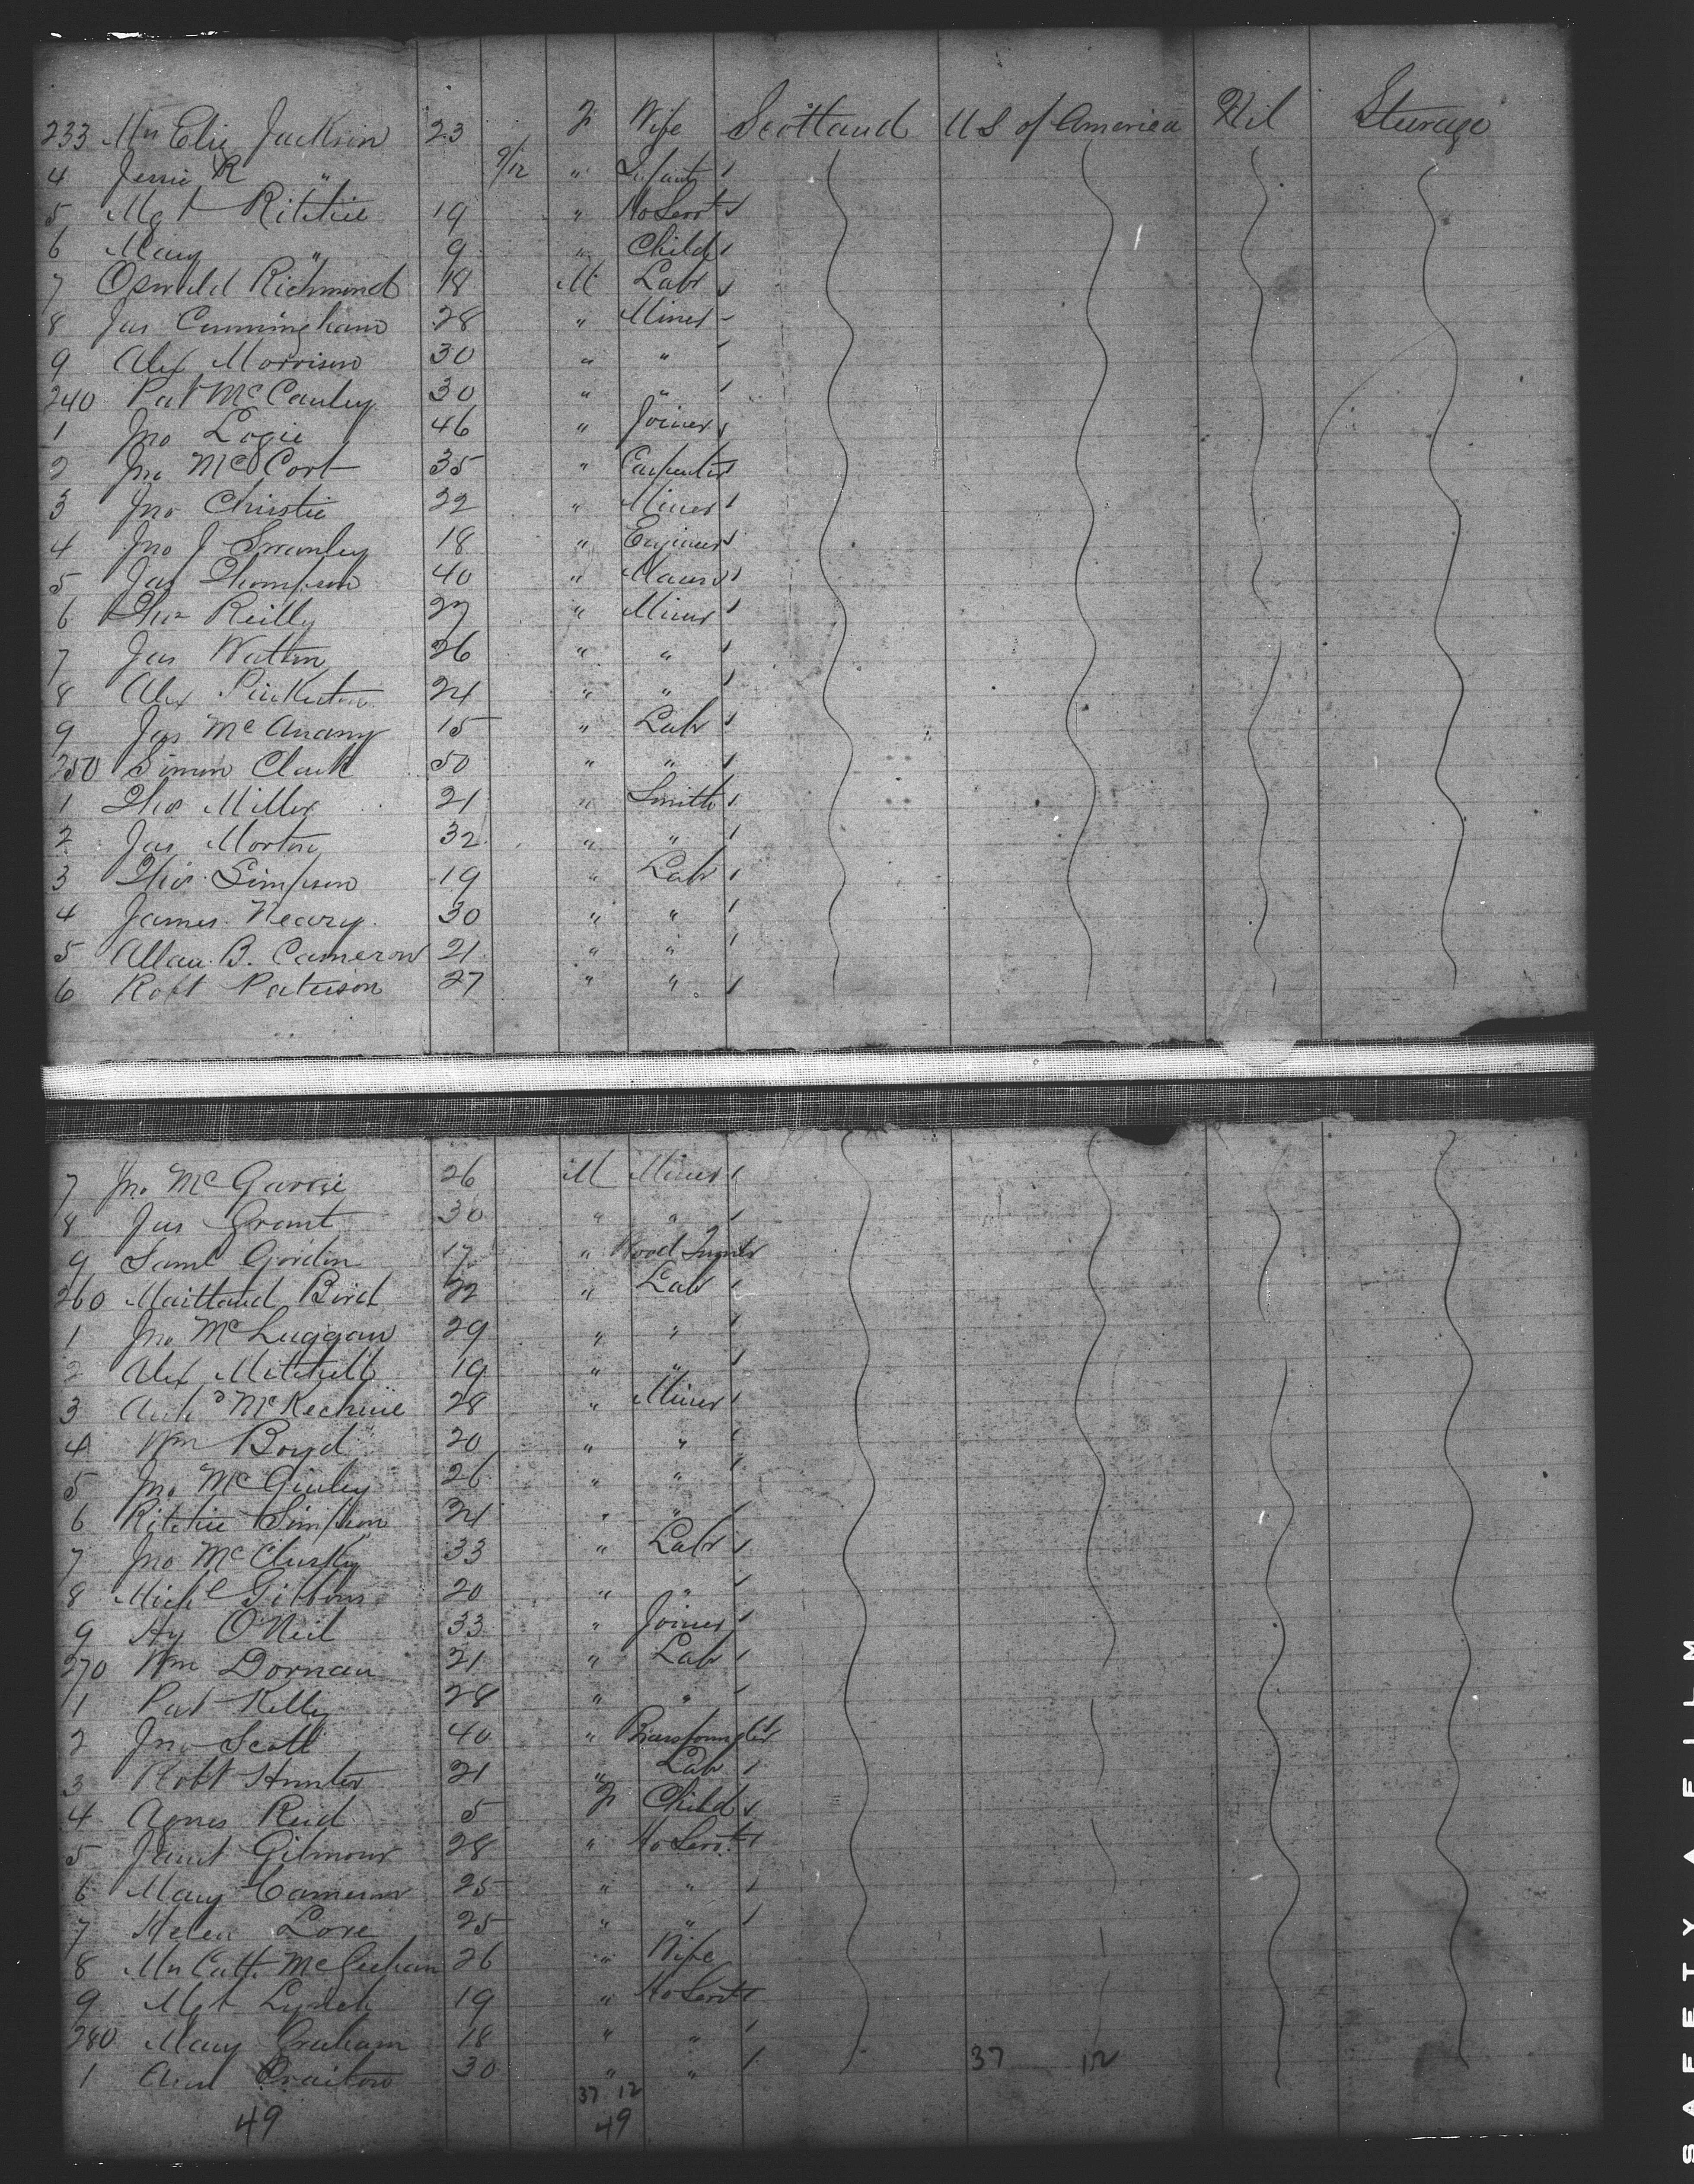 233 Mrs Eliz Jackson 23 F Wife Scotland U S of America Nil Steerage
4 Jessie R " 9/12 " Infant
5 Mgt Ritchie 19 " Ho Servt
6 Mary " 9 " Child
7 Oswald Richmond 18 M Labr
8 Jas Cunningham 28 " Miner
9 Alex Morrison 30 " "
240 Pat McCauley 30 " "
1 Jno Logie 46 " Joiner
2 Jno McCort 35 " Carpenter
3 Jno Christie 22 " Miner
4 Jno J 18 " Engineer
5 Jas Thompson 40 " Mason
6 Thos Reilly 27 " Miner
7 Jas Watson 26 " "
8 Alex Pinkerton 24 " "
9 Jas McAnany 15 " Labr
250 Simon Clark 50 " "
1 Thos Miller 21 " Smith
2 Jas Morton 32 " "
3 Thos Simpson 19 " Labr
4 James Neary 30 " "
5 Allan B. Cameron 21 " "
6 Robt Paterson 27 " "
7 Jno McGarrie 26 M Miner
8 Jas Grant 30 " "
9 Saml Gordon 17 " Wood
260 Maitland Bird 22 " Labr
1 Jno McLuggan 29 " "
2 Alex Mitchell 19 " "
3 Archd McKechnie 28 " Miner
4 Wm Boyd 20 " "
5 Jno McGinley 26 " "
6 Ritchie Simpson 24 " "
7 Jno McClusky 33 " Labr
8 Michl Gibbons 20 " "
9 Hy O'Neil 33 " Joiner
270 Wm Dornan 21 " Labr
1 Pat Kelly 28 " "
2 Jno Scott 40 "
3 Robt Hunter 21 " Labr
4 Agnes Reid 5 F Child
5 Janet Gilmour 28 " Ho Servt
6 Mary Cameron 25 " "
7 Helen Love 25 " "
8 Mrs Cath. McGeehan 26 " Wife
9 Mgt Lynch 19 " Ho Servt
280 Mary Graham 18 " "
1 Ann 30 " " 37 12
37 12
49 49
SAFETY FILM